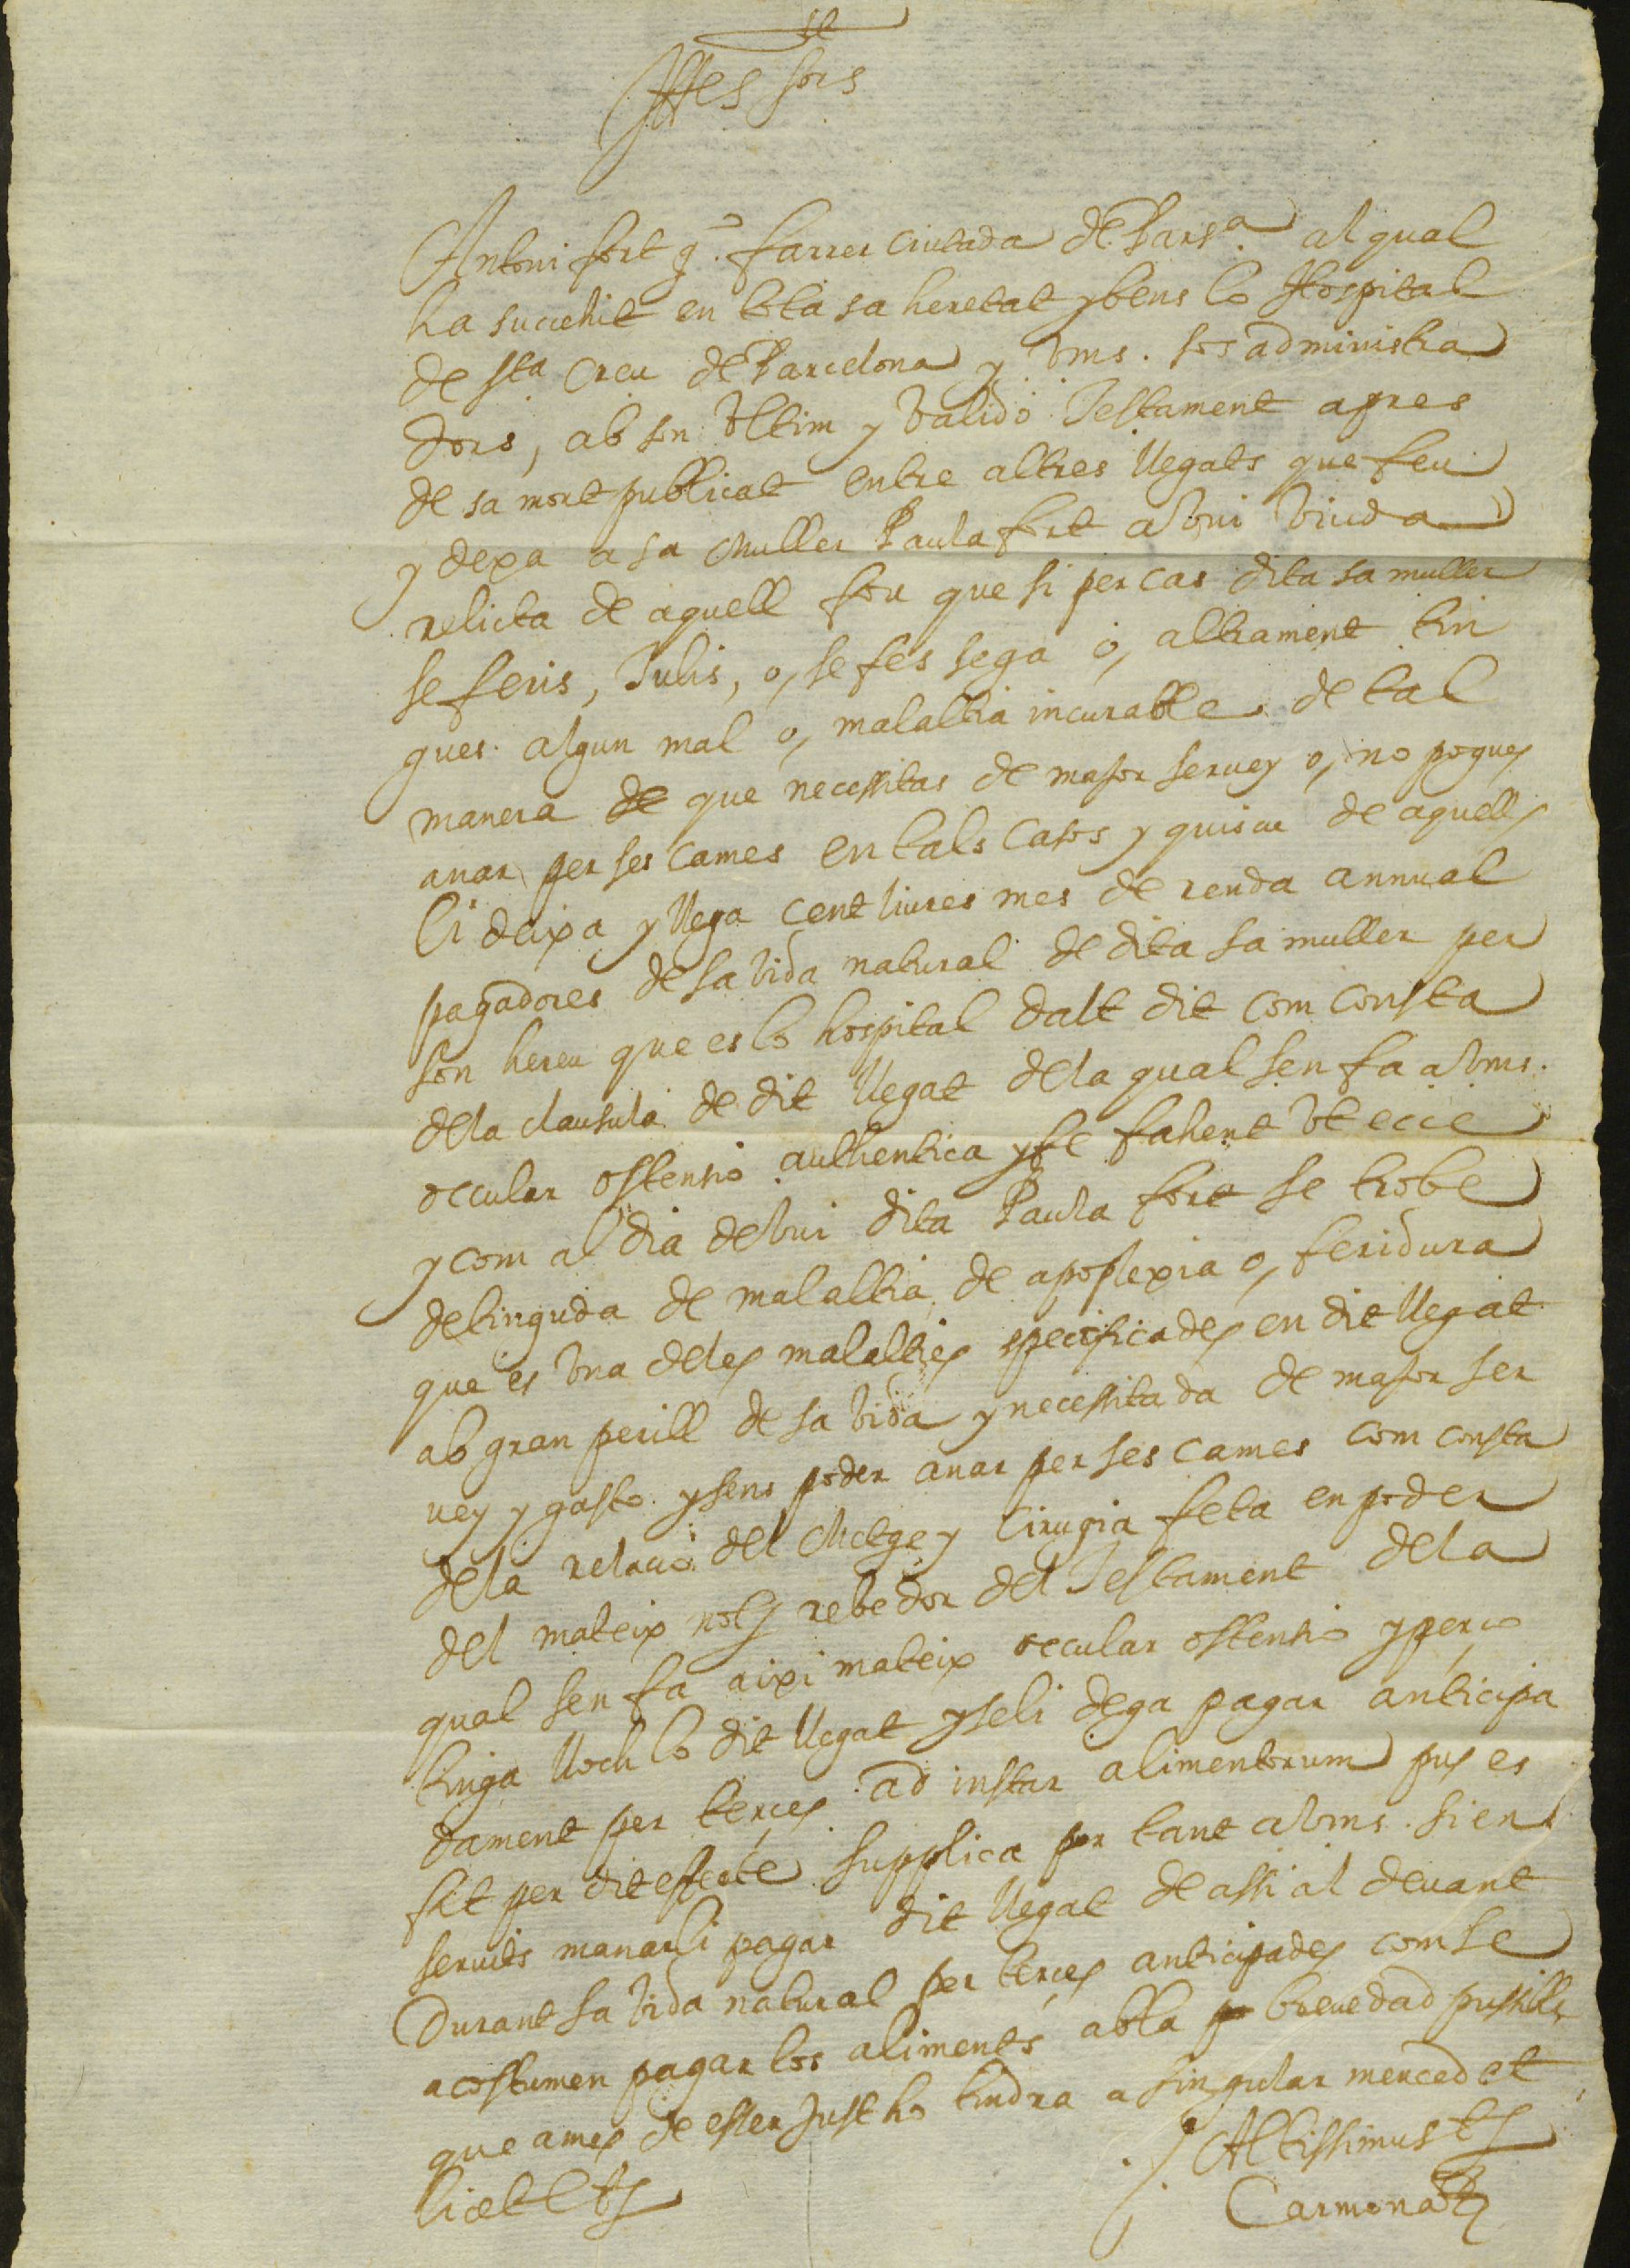 Illes Sors
Antoni fort q̃. farrer ciutada de Barsª. al qual
ha succehit en tota sa heretat y bens lo Hospital
de Sta Creu de Barcelona y Vms. sos administra
dors, ab son Vltim y Valido Testament apres
de sa mort publicat entre altres llegats que feu
y dexa a sa Muller Paula fort a Vui Viuda
relicta de aquell fou que si per cas dita sa muller
se feris, Tulis, o, se fes sega o, altrament tin
gues algun mal o, malaltia incurable de tal
manera de que necessitas de major seruey o, no pogues
anar per ses cames en tals casos y quiscu de aquells
li deixa y llega cent liures mes de renda annual
pagadores de sa Vida natural de dita sa muller per
son hereu que es lo hospital dalt dit com consta
dela clausula de dit llegat dela qual sen fa a Vms.
occular ostensio authentica y fe fahent Vt ecce
y com al dia de Vui dita Paula fort se trobe
detinguda de malaltia de apoplexia o, feridura
que es Vna deles malalties specificades en dit llegat
ab gran perill de sa Vida y necessitada de major ser
uey y gasto y sens poder anar per ses cames com consta
dela relacio del Metge y Cirugia feta en poder
del mateix noty rebedor del Testament dela
qual sen fa aixi mateix occular ostensio y perço
tinga lloch lo dit llegat y seli dega pagar anticipa
dament per terçes ad instar alimentorum pus es
fet per dit effecte supplica per tant a Vms. sien
seruits manarli pagar dit llegat de assi al deuant
Durant sa Vida natural per terçes anticipades com se
acostumen pagar los aliments ab la breuedad pussible
que ames de esser Just ho tindra a singular merced et
licet ets
Altissimus ets
Carmona